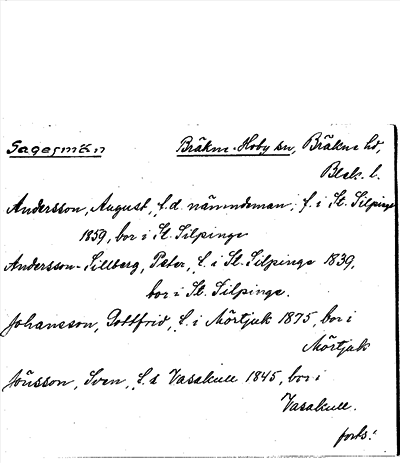 Sagesmän Bräkne-Hoby sn, Bräkne hd,
Blek. l.
Andersson, August, f.d. nämndeman, f. i St. Silpinge
1859, bor i St. Silpinge
Andersson-Sillberg, Peter, f. i St. Silpinge 1839,
bor i St. Silpinge.
Johansson, Gottfrid, f. i Mörtjuk 1875, bor i
Mörtjuk
Jönsson, Sven, f. i Vasakull 1845, bor i
Vasakull.
forts.